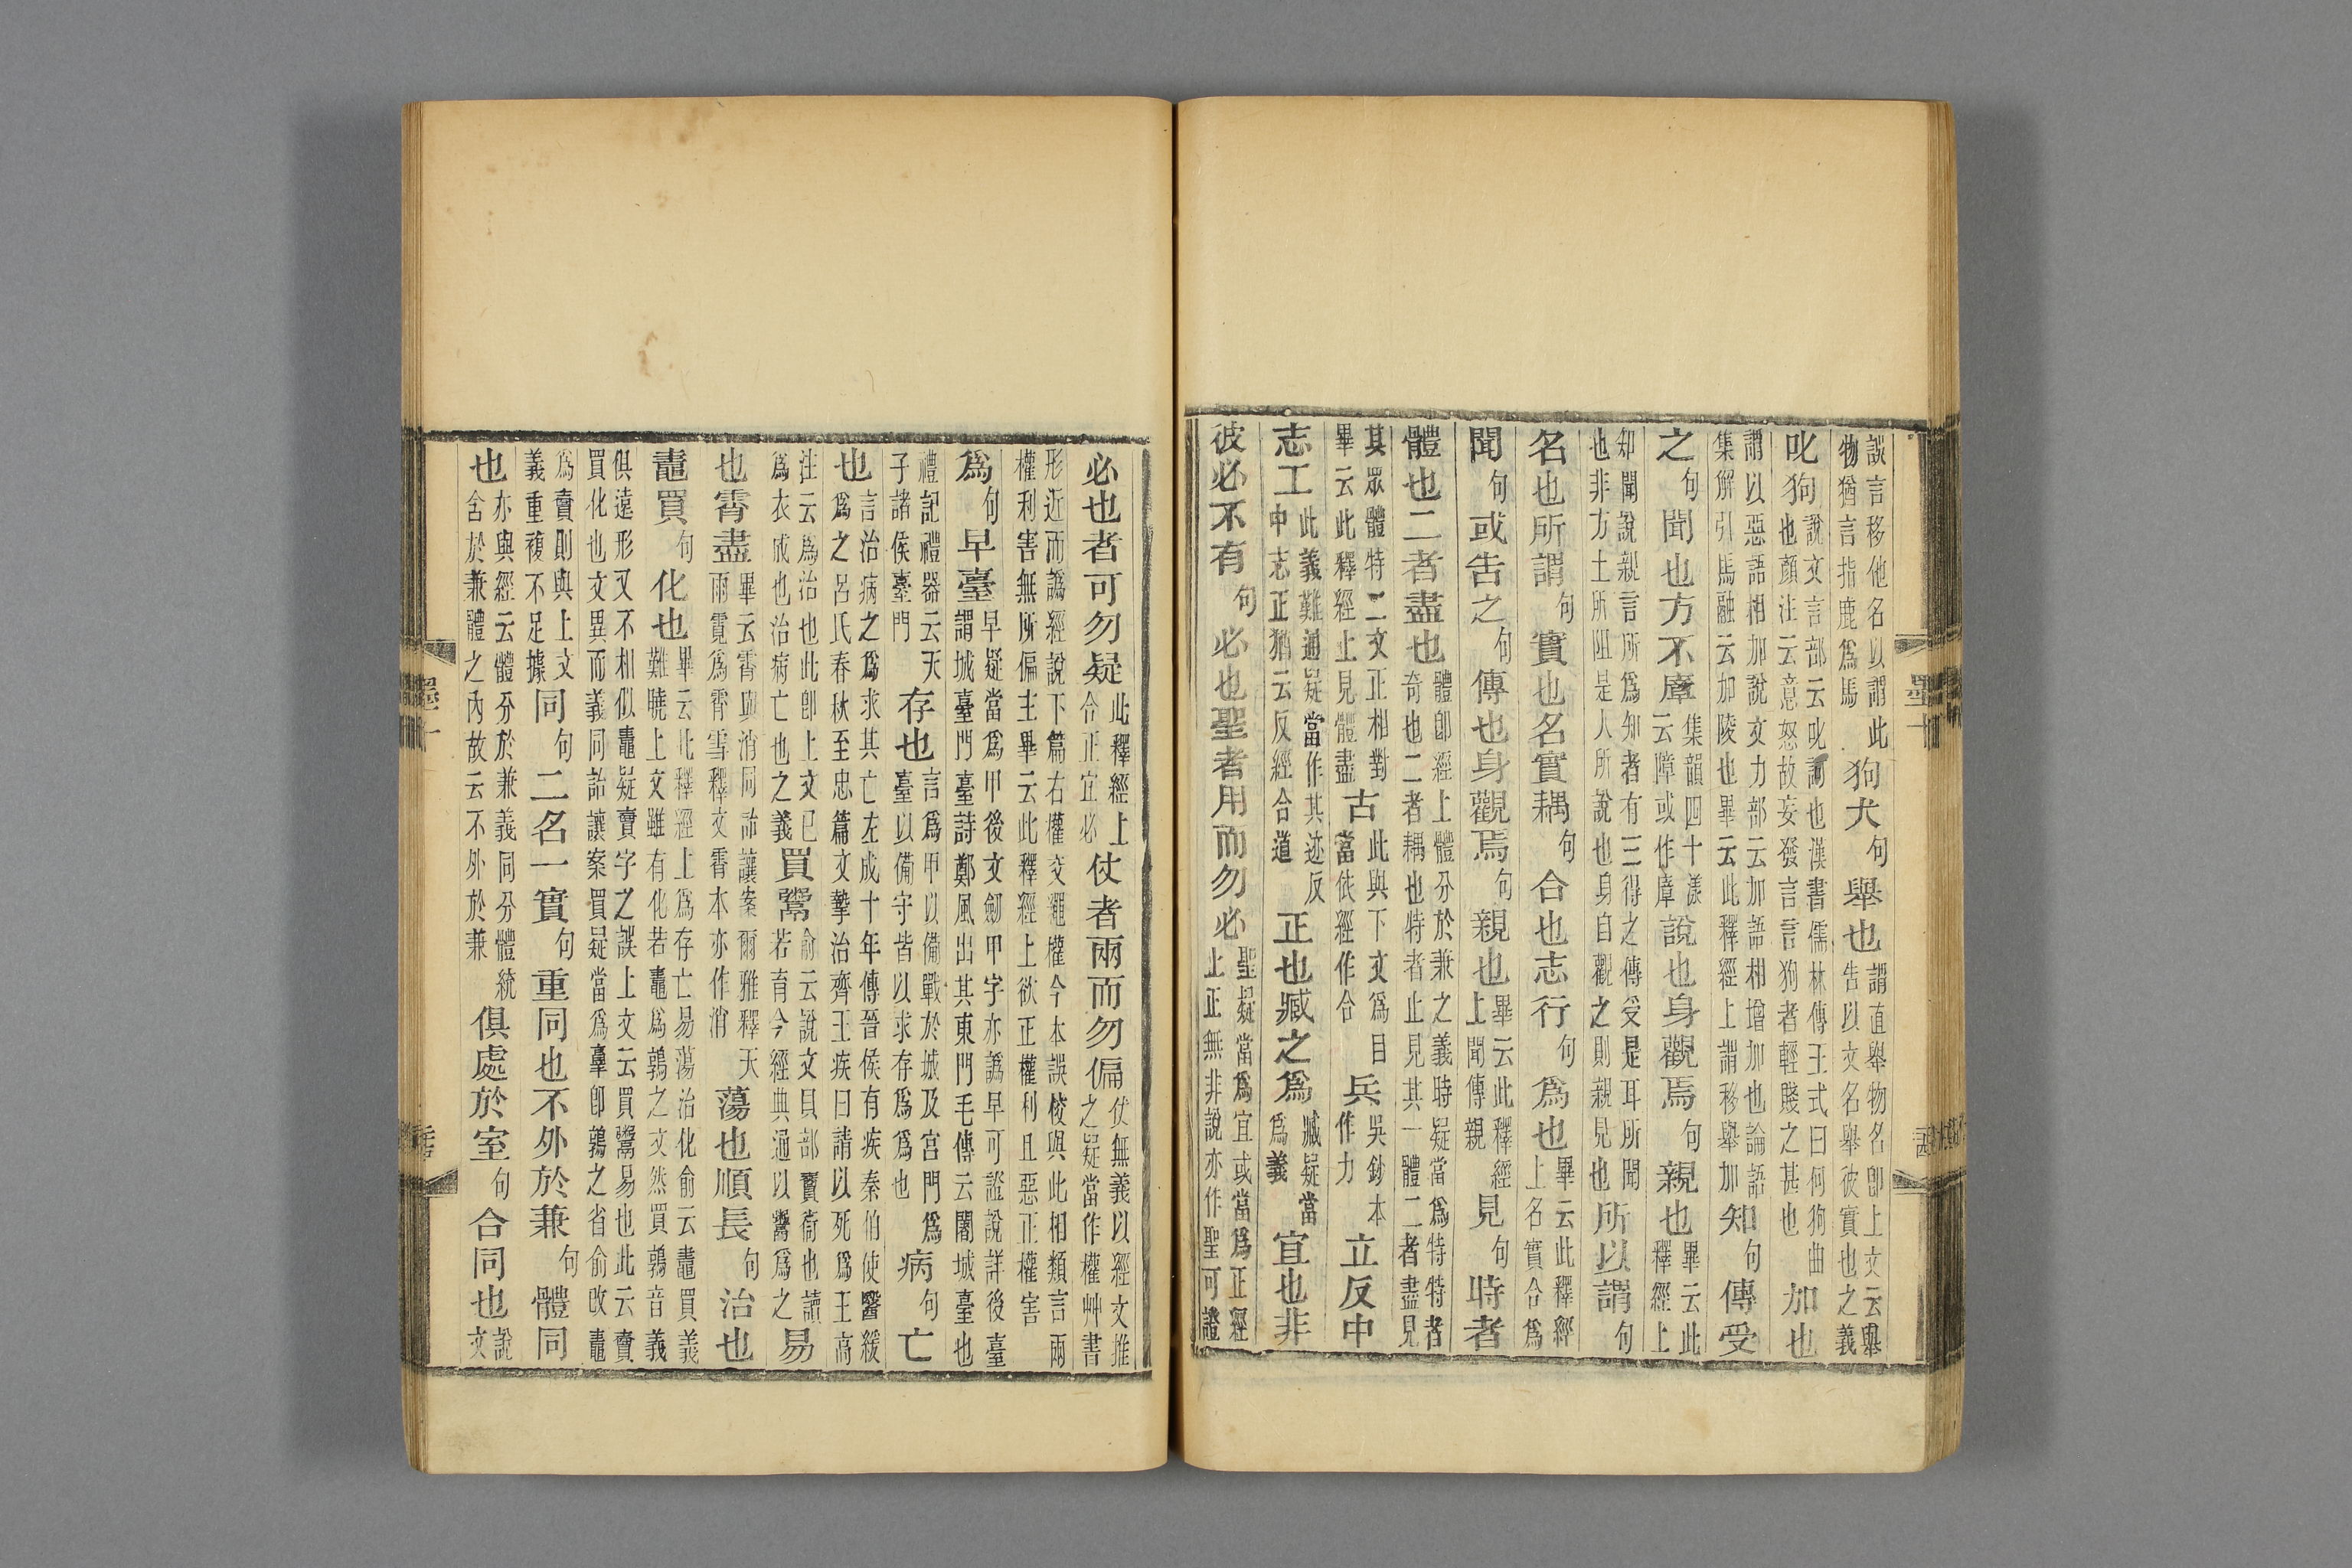 誤言移他名以謂此
物猶言指鹿爲馬
狗犬句舉也
謂直舉物名卽上文云舉
告以文名舉彼實也之義
叱狗
說文言部云叱訶也漢書儒林傳王式曰何狗曲
也顏注云意怒故妄發言言狗者輕賤之甚也
加也
謂以惡語相加說文力部云加語相增加也論語
集解引馬融云加陵也畢云此釋經上謂移舉加
知句傳受
之句聞也方不㢓
集韻四十漾
云障或作㢓
說也身觀焉句親也
畢云此
釋經上
知聞說親言所爲知者有三得之傳受是耳所聞
也非方土所阻是人所說也身自觀之則親見也
所以謂句
名也所謂句實也名實耦句合也志行句爲也
畢云此釋經
上名實合爲
聞句或告之句傳也身觀焉句親也
畢云此釋經
上聞傳親
見句時者
體也二者盡也
體卽經上體分於兼之義時疑當爲特特者
奇也二者耦也特者止見其一體二者盡見
其眾體特二文正相對
畢云此釋經上見體盡
古
此與下文爲目
當依經作合
兵
吳鈔本
作力
立反中
志工
此義難通疑當作其迹反
中志正猶云反經合道
正也臧之爲
臧疑當
爲義
宜也非
彼必不有句必也聖者用而勿必
聖疑當爲宜或當爲正經
止正無非說亦作聖可證
必也者可勿疑
此釋經上
合正宜必
仗者兩而勿偏
仗無義以經文推
之疑當作權艸書
形近而譌經說下篇右權交繩權今本誤校與此相類言兩
權利害無所偏主畢云此釋經上欲正權利且惡正權害
爲句早臺
早疑當爲甲後文劒甲字亦譌早可證說詳後臺
謂城臺門臺詩鄭風出其東門毛傳云闍城臺也
禮記禮器云天
子諸侯臺門
存也
言爲甲以備戰於城及宮門爲
臺以備守皆以求存爲爲也
病句亡
也
言治病之爲求其亡左成十年傳晉侯有疾秦伯使醫緩
爲之呂氏春秋至忠篇文摯治齊王疾曰請以死爲王高
注云爲治也此卽上文已
爲衣成也治病亡也之義
買鬻
俞云說文貝部賣衒也讀
若育今經典通以鬻爲之
易
也霄盡
畢云霄與消同詒讓案爾雅釋天
雨霓爲霄雪釋文霄本亦作消
蕩也順長句治也
鼃買句化也
畢云此釋經上爲存亡易蕩治化俞云鼃買義
難曉上文雖有化若鼃爲鶉之文然買鶉音義
俱遠形又不相似鼃疑賣字之誤上文云買鬻易也此云賣
買化也文異而義同詒讓案買疑當爲羣卽鶉之省俞改鼃
爲賣則與上文
義重複不足據
同句二名一實句重同也不外於兼句體同
也
亦與經云體分於兼義同分體統
含於兼體之內故云不外於兼
俱處於室句合同也
說
文
墨十